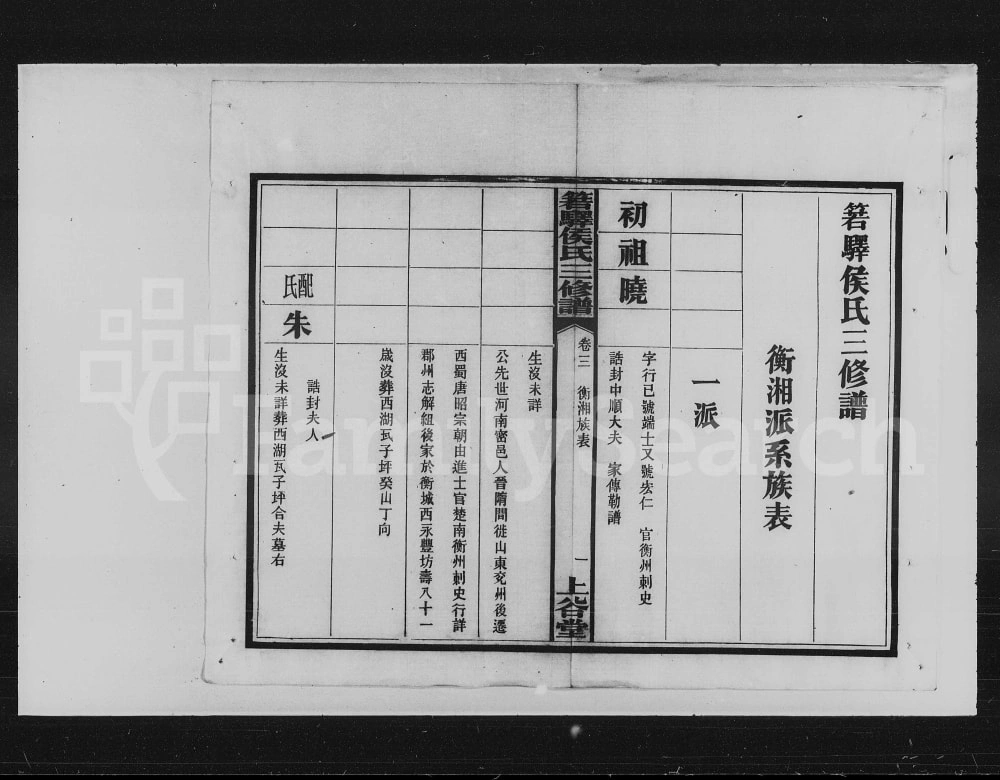 箬驛侯氏三修譜
衡湘派系族表
一派
初祖曉
字行已號端士又號宏仁 官衡州刺史
誥封中順大夫 家傳勒譜
箬驛侯氏三修譜
卷三 衡湘族表
一
上谷堂
生沒未詳
公先世河南密邑人晉隋間徙山東兗州後遷
西蜀唐昭宗朝由進士官楚南衡州刺史行詳
郡州志解紐後家於衡城西永豐坊壽八十一
歲沒葬西湖瓦子坪癸山丁向
配氏
朱
誥封夫人
生沒未詳葬西湖瓦子坪合夫墓右
FamilySearch